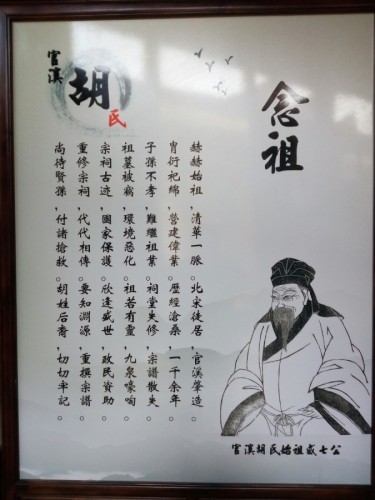 官溪
胡
氏
念祖
赫赫始祖，清華一脈。北宋徒居，官溪肇造。
胄衍祀綿，營建偉業。歷經滄桑，一千余年。
子孫不孝，難繼祖業。祠堂失修，宗譜散失。
祖墓被竊，環境惡化。祖若有靈，九泉嚎啕。
宗祠古迹，國家保護。欣逢盛世，政民資助。
重修宗祠，代代相傳。要知淵源，重撰宗譜。
尚待賢孫，付諸搶救。胡姓后裔，切切牢記。
官溪胡氏始祖咸七公